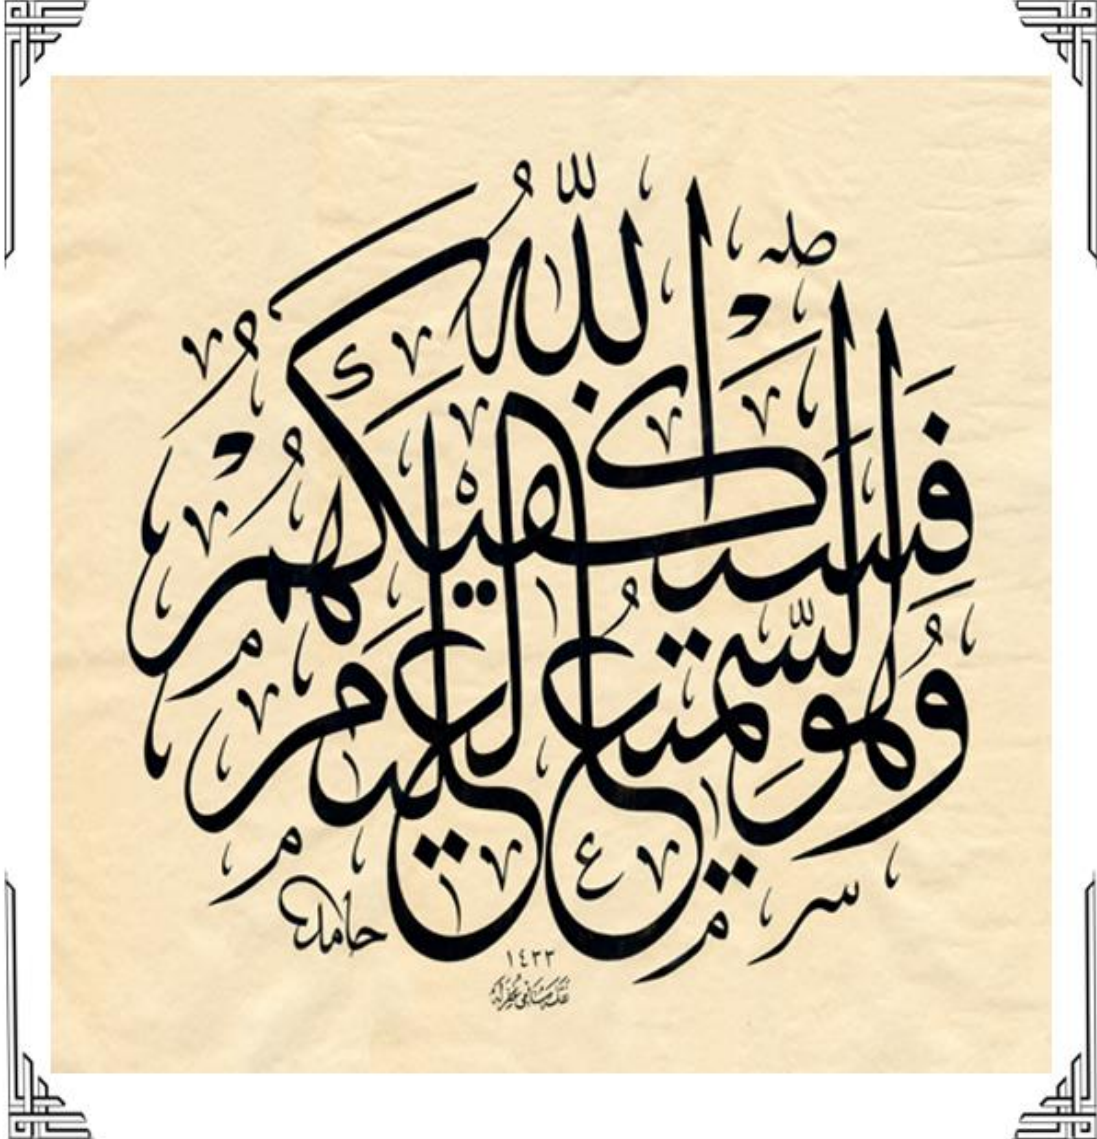 فَسَيَكْفِيكَهُمُ اللّٰهُ
وَهُوَ السَّمِيعُ الْعَلِيمُ
حامد
١٤٣٣